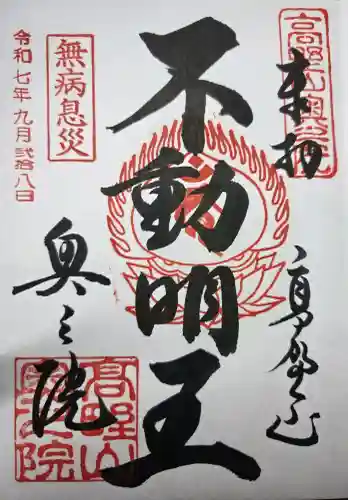 奉拝
高野山奥之院
高野山
不動明王
無病息災
奥之院
高野山奥之院
令和七年九月弐拾八日